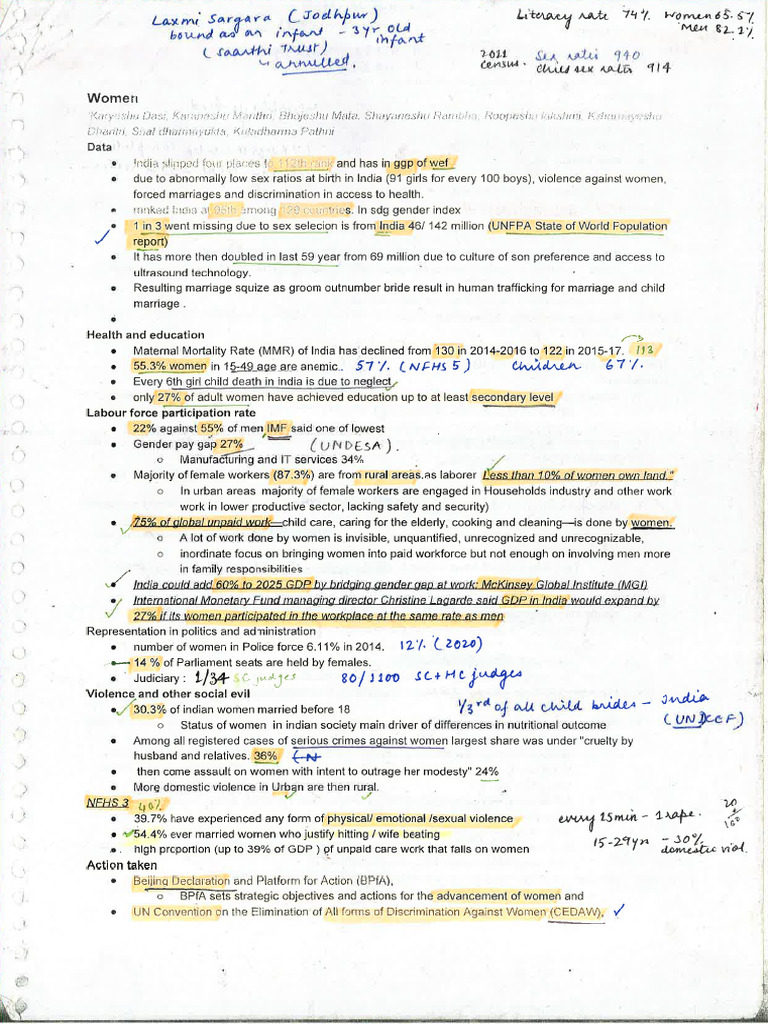 Laxmi Sargara (Jodhpur)
bound as an infant - 3yr old infant
(Saarthi Trust)
↳ annulled.
Literacy rate 74% Women 65.5%
Men 82.1%
2011 census. Sex ratio 940
Child sex ratio 914
Women
'Karyeshu Dasi, Karaneshu Manthri, Bhojeshu Mata, Shayaneshu Rambha, Roopeshu lakshmi, Kshamayeshu
Dharitri, Shat dharmayukta, Kuladharma Pathni
Data
• India slipped four places to 112th rank and has in ggp of wef
• due to abnormally low sex ratios at birth in India (91 girls for every 100 boys), violence against women,
forced marriages and discrimination in access to health.
• ranked India at 95th among 129 countries. In sdg gender index
• 1 in 3 went missing due to sex selecion is from India 46/ 142 million (UNFPA State of World Population
report)
• It has more then doubled in last 59 year from 69 million due to culture of son preference and access to
ultrasound technology.
• Resulting marriage squize as groom outnumber bride result in human trafficking for marriage and child
marriage .
•
Health and education
• Maternal Mortality Rate (MMR) of India has declined from 130 in 2014-2016 to 122 in 2015-17. 113
• 55.3% women in 15-49 age are anemic.. 57% (NFHS 5) Children 67%.
• Every 6th girl child death in india is due to neglect
• only 27% of adult women have achieved education up to at least secondary level
Labour force participation rate
• 22% against 55% of men IMF said one of lowest
• Gender pay gap 27% (UNDESA).
○ Manufacturing and IT services 34%
• Majority of female workers (87.3%) are from rural areas.as laborer Less than 10% of women own land."
○ In urban areas majority of female workers are engaged in Households industry and other work
work in lower productive sector, lacking safety and security)
• 75% of global unpaid work—child care, caring for the elderly, cooking and cleaning—is done by women.
○ A lot of work done by women is invisible, unquantified, unrecognized and unrecognizable,
○ inordinate focus on bringing women into paid workforce but not enough on involving men more
in family responsibilities
• India could add 60% to 2025 GDP by bridging gender gap at work: McKinsey Global Institute (MGI)
• International Monetary Fund managing director Christine Lagarde said GDP in India would expand by
27% if its women participated in the workplace at the same rate as men
Representation in politics and administration
• number of women in Police force 6.11% in 2014. 12% (2020)
• 14 % of Parliament seats are held by females.
• Judiciary : 1/34 SC judges 80/1100 SC+HC judges
Violence and other social evil
• 30.3% of indian women married before 18 1/3rd of all child brides - India
(UNICEF)
○ Status of women in indian society main driver of differences in nutritional outcome
• Among all registered cases of serious crimes against women largest share was under "cruelty by
husband and relatives. 36%
• then come assault on women with intent to outrage her modesty" 24%
• More domestic violence in Urban are then rural.
NFHS 3 40%
• 39.7% have experienced any form of physical/ emotional /sexual violence every 15min - 1 rape.
• 54.4% ever married women who justify hitting / wife beating 15-29yr - 30%
domestic viol.
• high prcportion (up to 39% of GDP ) of unpaid care work that falls on women
Action taken
• Beijing Declaration and Platform for Action (BPfA),
○ BPfA sets strategic objectives and actions for the advancement of women and
• UN Convention on the Elimination of All forms of Discrimination Against Women (CEDAW),